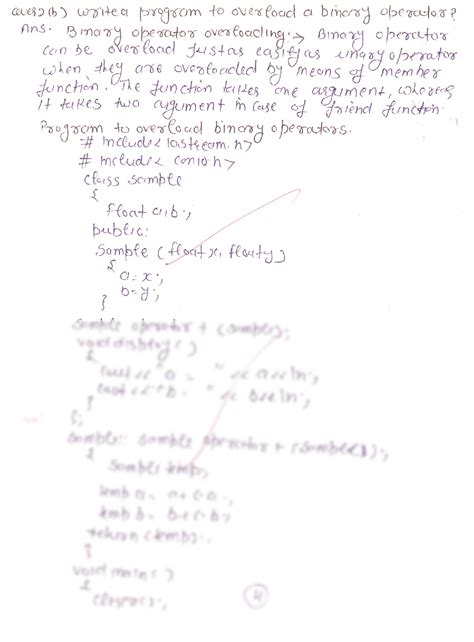 Ques2(b) Write a program to overload a binary operator?
Ans. Binary operator overloading:→ Binary operator
can be overload just as easily as unary operator
when they are overloaded by means of member
function. The function takes one argument, whereas
it takes two argument in case of friend function.
Program to overload binary operators.
# include< iostream.h>
# include< conio.h>
class sample
{
float a,b;
public:
sample (float x, float y)
{
a=x;
b=y;
}
sample operator + (sample);
void display()
{
cout<< "a = " << a<<
cout<< "b = " << b<<
}
};
sample:: sample operator + (sample
{
sample temp;
temp a = a+c.a;
temp b = b+c.b;
return (temp);
}
void main()
{
clrscr();
4